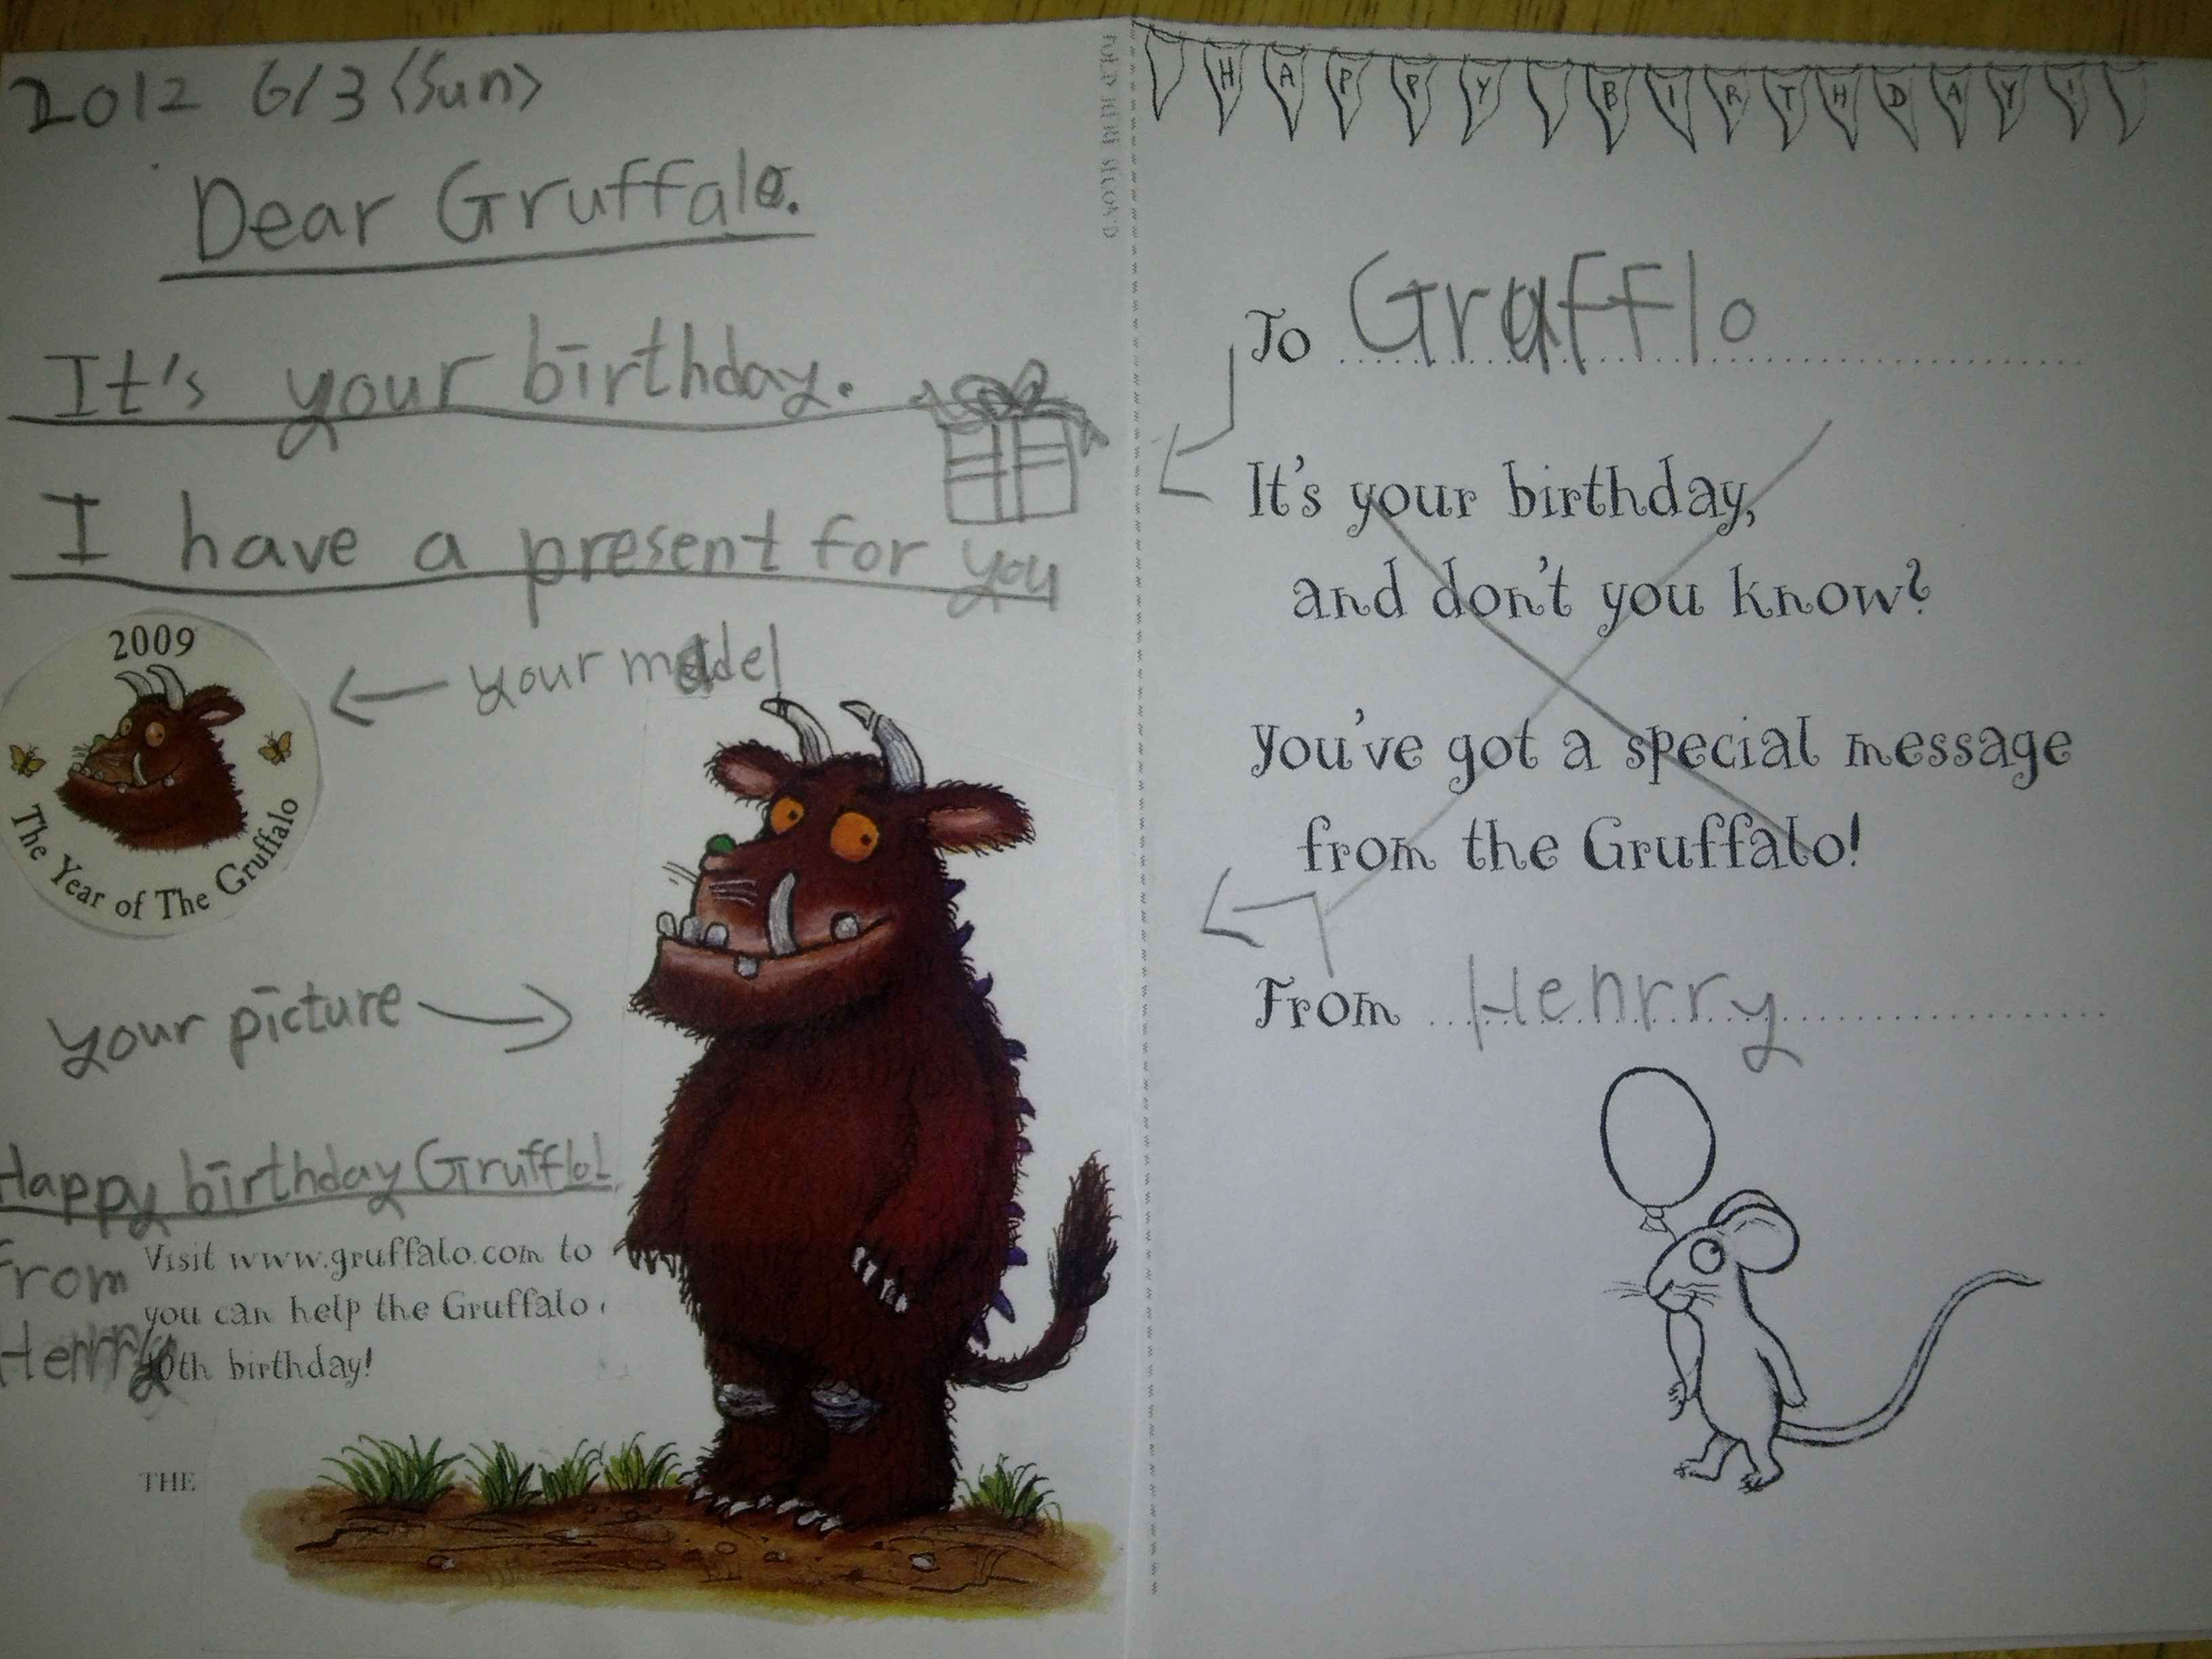 2012 6/3 <Sun>
Dear Gruffalo.
It's your birthday.
I have a present for you
2009
The Year of The Gruffalo
← your model
your picture →
Happy birthday Grufflo!
From
Henrry
Visit www.gruffalo.com to
you can help the Gruffalo
10th birthday!
THE
HAPPY BIRTHDAY!
To Grufflo
It's your birthday,
and don't you know?
You've got a special message
from the Gruffalo!
From Henrry